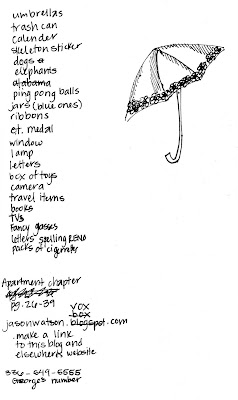 umbrellas
trash can
calender
skeleton sticker
dogs
elephants
alabama
ping pong balls
jars (blue ones)
ribbons
et. medal
window
lamp
letters
box of toys
camera
travel items
books
TVs
fancy glasses
letters spelling RENO
packs of cigarettes
Apartment chapter
pg. 26-39
vox
box
jasonwatson.blogspot.com
. make a link
to this blog and
elsewhere website
336-649-5555
George's number